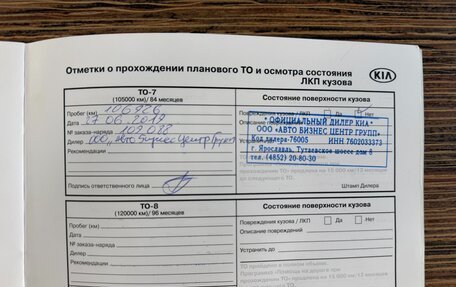 Отметки о прохождении планового ТО и осмотра состояния
ЛКП кузова
KIA
ТО-7
(105000 км)/ 84 месяцев
Состояние поверхности кузова
Пробег (км) 106926
Повреждения кузова / ЛКП Да Нет
Дата 27.06.2019
Описание повреждений
№ заказ-наряда 109 088
Дилер ООО "Авто Бизнес Центр Групп"
Рекомендации
* ОФИЦИАЛЬНЫЙ ДИЛЕР КИА *
ООО «АВТО БИЗНЕС ЦЕНТР ГРУПП»
Код дилера-76005 ИНН 7602033373
г. Ярославль, Тутаевское шоссе дом 8
тел. (4852) 20-80-30
до следующего ТО
Подпись ответственного лица
Штамп Дилера
ТО-8
(120000 км)/ 96 месяцев
Состояние поверхности кузова
Пробег (км)
Повреждения кузова / ЛКП Да Нет
Дата
Описание повреждений
№ заказа-наряда
Дилер
Устранить до
Рекомендации
ТО пройдено в полном объеме.
Программа «Помощь на дороге при
ТО» продлена на 15 000 км/12
месяцев